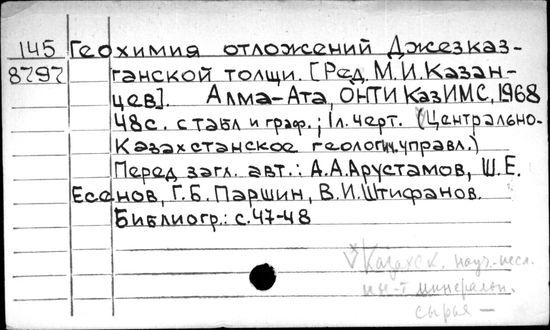 145 Геохимия отложений Джезказ-
8797 ганской толщи. [Ред. М.И. Казан-
цев]. Алма-Ата, ОНТИ КазИМС, 1968
48с. с табл и граф.; 1л. черт. (Центрально-
Казахстанское геологич. управл.)
Перед загл. авт.: А.А. Арустамов, Ш.Е.
Есенов, Г.Б. Паршин, В.И. Штифанов.
Библиогр.: с. 47-48
Казахск. науч.-иссл.
ин-т минеральн.
сырья —